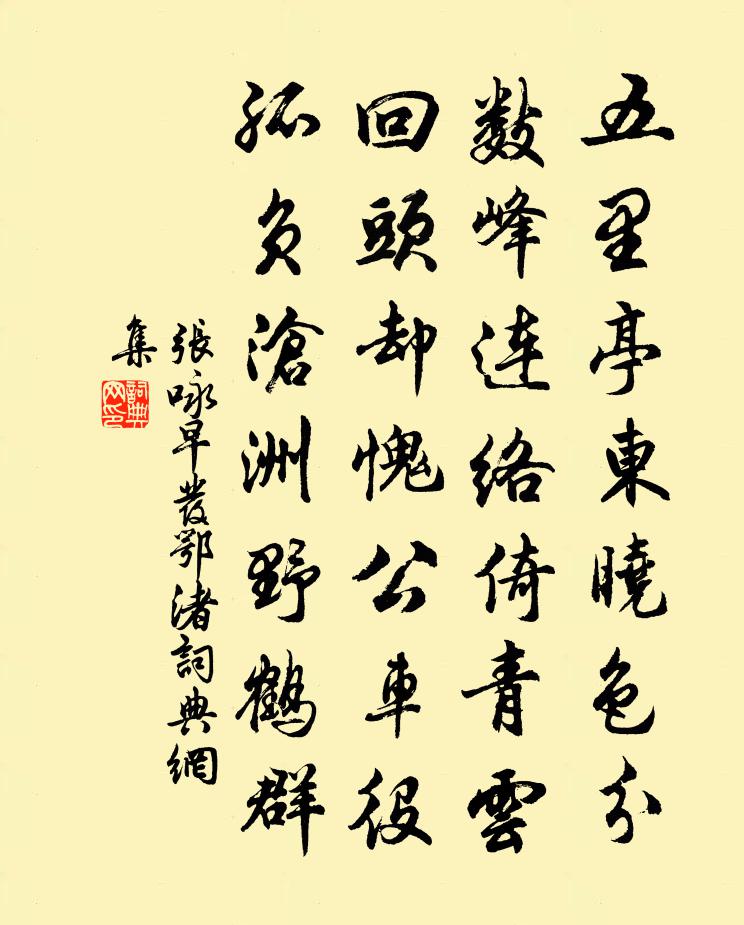 五里亭東曉色分
數峰連絡倚青雲
回頭却愧公車役
孤負滄洲野鶴群
張咏早發鄂渚詞典網
集
詞典
网印